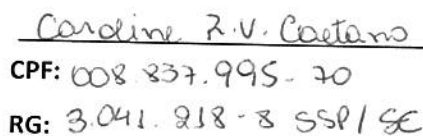 Caroline R.V. Caetano
CPF: 008.837.995-70
RG: 3.041.218-8 SSP/SE